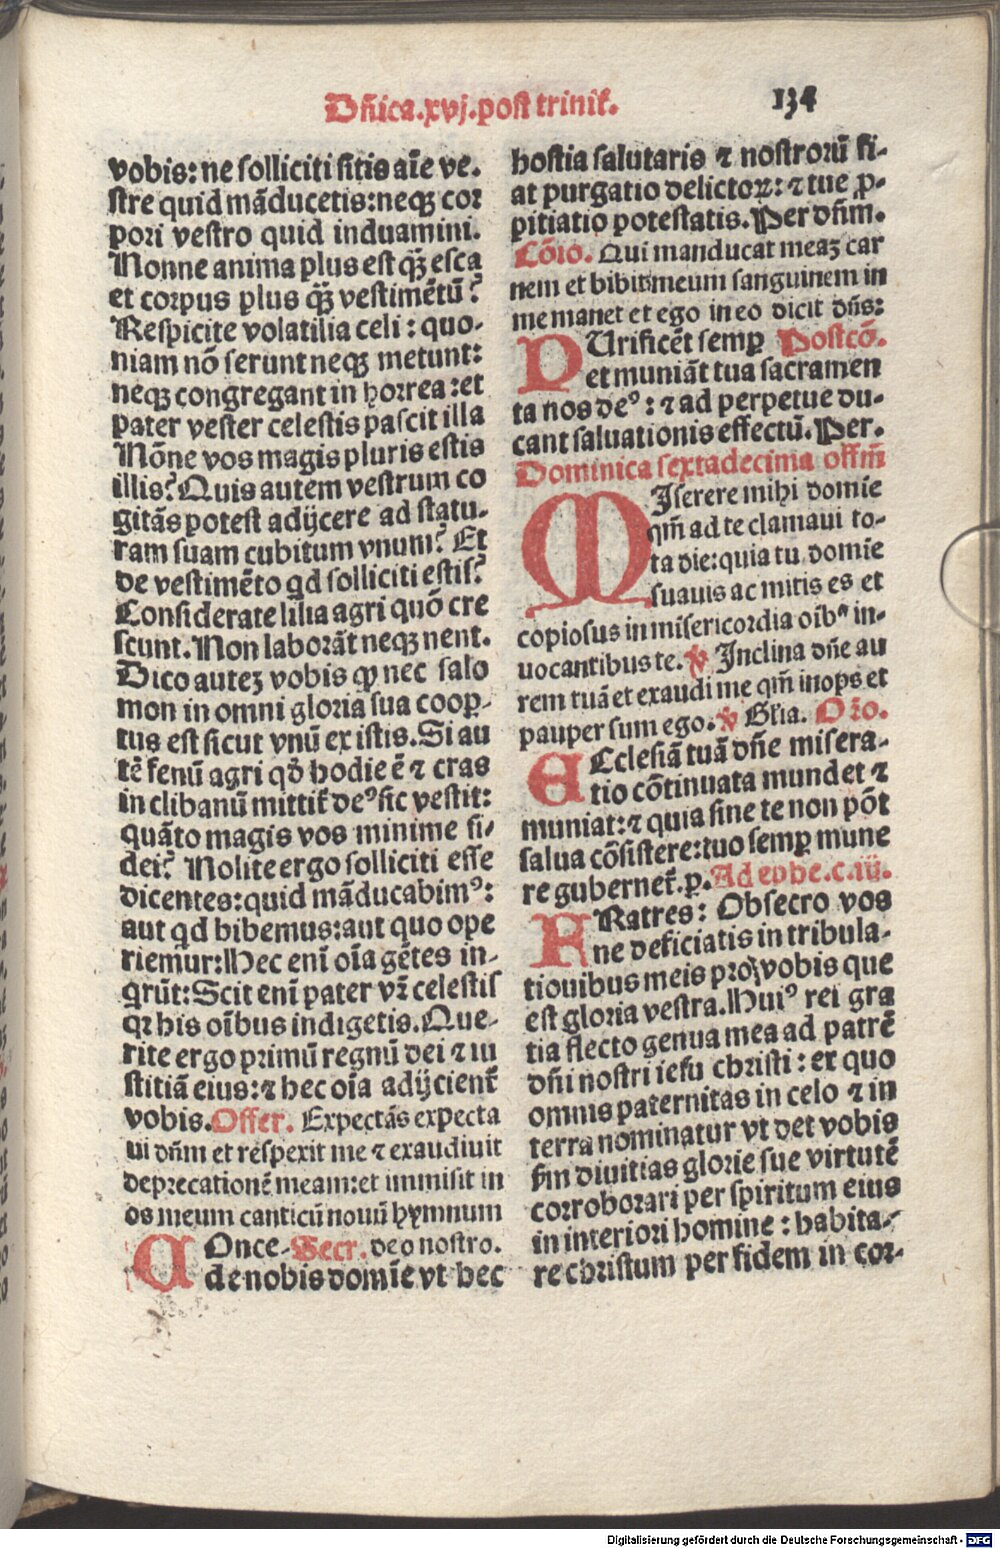 Dñica.xvj.post trinit̄. 134
vobis: ne solliciti sitis aīe ve-
stre quid māducetis:neqꝫ cor
pori vestro quid induamini.
Nonne anima plus est qꝫ̄ esca
et corpus plus qꝫ̄ vestimētū?
Respicite volatilia celi: quo-
niam nō serunt neqꝫ metunt:
neqꝫ congregant in horrea:et
pater vester celestis pascit illa
Nōne vos magis pluris estis
illis? Quis autem vestrum co
gitās potest adijcere ad statu-
ram suam cubitum vnum? Et
de vestimēto qd solliciti estis?
Considerate lilia agri quō cre
scunt. Non laborāt neqꝫ nent.
Dico auteꝫ vobis ꝙ nec salo
mon in omni gloria sua coop-
tus est sicut vnū ex istis. Si au
tē fenū agri qđ hodie ē ⁊ cras
in clibanū mittit̄ deꝰ sic vestit:
quāto magis vos minime fi-
dei? Nolite ergo solliciti esse
dicentes:quid māducabimꝰ:
aut qd bibemus:aut quo ope
riemur:Hec enī oīa gētes in-
qrūt:Scit enī pater vr̄ celestis
qꝛ his oībus indigetis.Que-
rite ergo primū regnū dei ⁊ iu
stitiā eius:⁊ hec oīa adijcient̄
vobis.Offer. Expectās expecta
ui dn̄m et respexit me ⁊ exaudiuit
deprecationē meam:et immisit in
os meum canticū nouū hymnum
COnce-Secr. deo nostro.
de nobis domīe vt hec
hostia salutaris ⁊ nostrorū fi-
at purgatio delictoꝝ:⁊ tue ꝓ-
pitiatio potestatis.Per dn̄m.
Cōio. Qui manducat meaꝫ car
nem et bibit meum sanguinem in
me manet et ego in eo dicit dn̄s:
PUrificēt semꝑ Postcō.
et muniāt tua sacramen
ta nos deꝰ: ⁊ ad perpetue du-
cant saluationis effectū. Per.
Dominica sextadecima offm̄
MIserere mihi domīe
qm̄ ad te clamaui to-
ta die:quia tu domīe
suauis ac mitis es et
copiosus in misericordia oībꝰ in-
uocantibus te. ℣ Inclina dn̄e au
rem tuā et exaudi me qm̄ inops et
pauper sum ego. ℣ Gl'ia. Oro.
ECclesiā tuā dn̄e misera-
tio cōtinuata mundet ⁊
muniat:⁊ quia sine te non pōt
salua cōsistere:tuo semꝑ mune
re gubernet̄.p. Ad ephe.c.iij.
FRatres: Obsecro vos
ne deficiatis in tribula-
tionibus meis pro vobis que
est gloria vestra. Huiꝰ rei gra
tia flecto genua mea ad patrē
dn̄i nostri iesu christi: ex quo
omnis paternitas in celo ⁊ in
terra nominatur vt det vobis
fm̄ diuitias glorie sue virtutē
corroborari per spiritum eius
in interiori homine: habita-
re christum per fidem in cor-
Digitalisierung gefördert durch die Deutsche Forschungsgemeinschaft - DFG